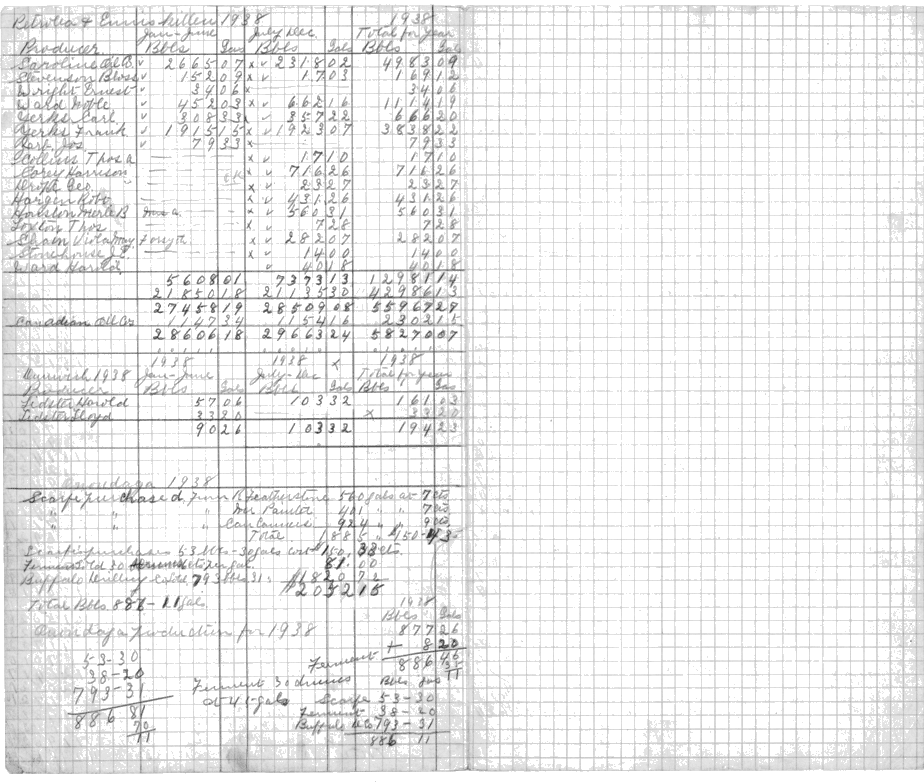 Petrolia & Enniskillen 1938 1938
Jan-June July Dec. Total for year
Producer Bbls Gals Bbls Gals Bbls Gals
Caroline Oil Co. v 2665 07 x v 2318 02 4983 09
Stevenson Bloss v 152 09 x v 17 03 169 12
Wright Ernest v 34 06 x 34 06
Ward Noble v 452 03 x v 662 16 1114 19
Yerks Carl v 308 33 x v 357 22 666 20
Yerks Frank v 1915 15 x v 1923 07 3838 22
Jos. v 79 33 x 79 33
Collins Thos a — x v 17 10 17 10
Corey Harrison — x v 716 26 716 26
Geo — x v 23 27 23 27
Hargen Robt — x v 431 26 431 26
Houston Merle B x v 560 31 560 31
Loxton Thos — x v 7 28 7 28
Sham Viola May Forsyth x v 282 07 282 07
Stonehouse J.E. — x v 14 00 14 00
Ward Harold v 40 18 40 18
5608 01 7373 13 12981 14
21850 18 21135 30 42986 13
27458 19 28509 08 55967 27
Canadian Oil Cos 1147 34 1154 16 2302 15
28606 18 29663 24 58270 07
1938 1938 x 1938
Dunwich 1938 Jan-June July-Dec Total for year
Producer Bbls Gals Bbls Gals Bbls Gals
Tidster Harold 57 06 103 32 161 03
Tidster Lloyd 33 20 — x 33 20
90 26 103 32 194 23
Onondaga 1938
Scarfe purchased from H Featherstone 560 gals at 7 cts.
" " " Mr. Painter 401 " " 7 cts.
" " " 924 " " 9 cts.
Total 1885 " $150-43
Scarfe purchases 53 bbls-30 gals cost $150.33 cts.
Ferment Sold 30 cts per gal. 81.00
Buffalo Drilling Co. Sold 793 bbls 31: $1820 72
$2052 15
Total Bbls 886-11 gals. 1938
Bbls Gals
Onondaga production for 1938 877 26
+ 8 20
53-30 Ferment 886 46
38-20 35
793-31 11
886 81 Ferment 30 drums Bbls gas
70 at 45 gals Scarfe 53-30
11 Ferment 38-20
Buffalo 793-31
886 11